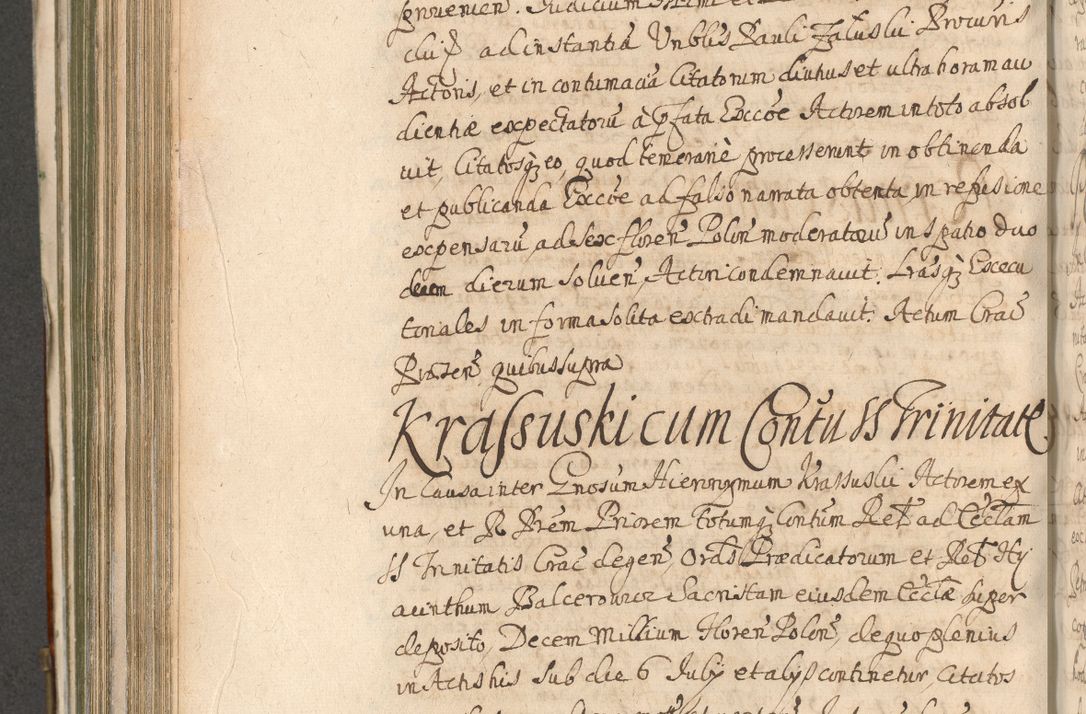 clũ ꝑ ad instantiã Unblis Pauli Załuskii Procũris
Actoris, et in contumaciã Citatorum diutius et ultra horam au
dientiæ expectatorũ à pfata Exccõe Actorem in toto absol
uit, Citatosqȝ eo, quod temerariè processerunt in obtinenda
et publicanda Exccõe ad falso narrata obtenta, in refusione
expensarũ ad sex floreñ Poloñ moderatarũ in spatio duo
decem dierum solueñ, Actori condemnauit. Lrasqȝ Execu
toriales in forma solita extradi mandauit. Actum Crac̃
Præseñ quibus supra
Krassuski cum Contũ SS Trinitatẽ
In Causa inter Gnosum Hieronymum Krassuskii Actorem ex
una, et R Prẽm Priorem Totumqȝ Contũm Rel̃ ad Ecclam
SS Trinitatis Crac̃ degeñ, Ords Prædicatorum et Rel̃ Hy
acinthum Balcerowicz Sacristam eiusdem Ecclæ super
deposito, Decem Millium floreñ Poloñ, de quo plenius
in Actis his sub die 6 July et alijs continetur Citatos